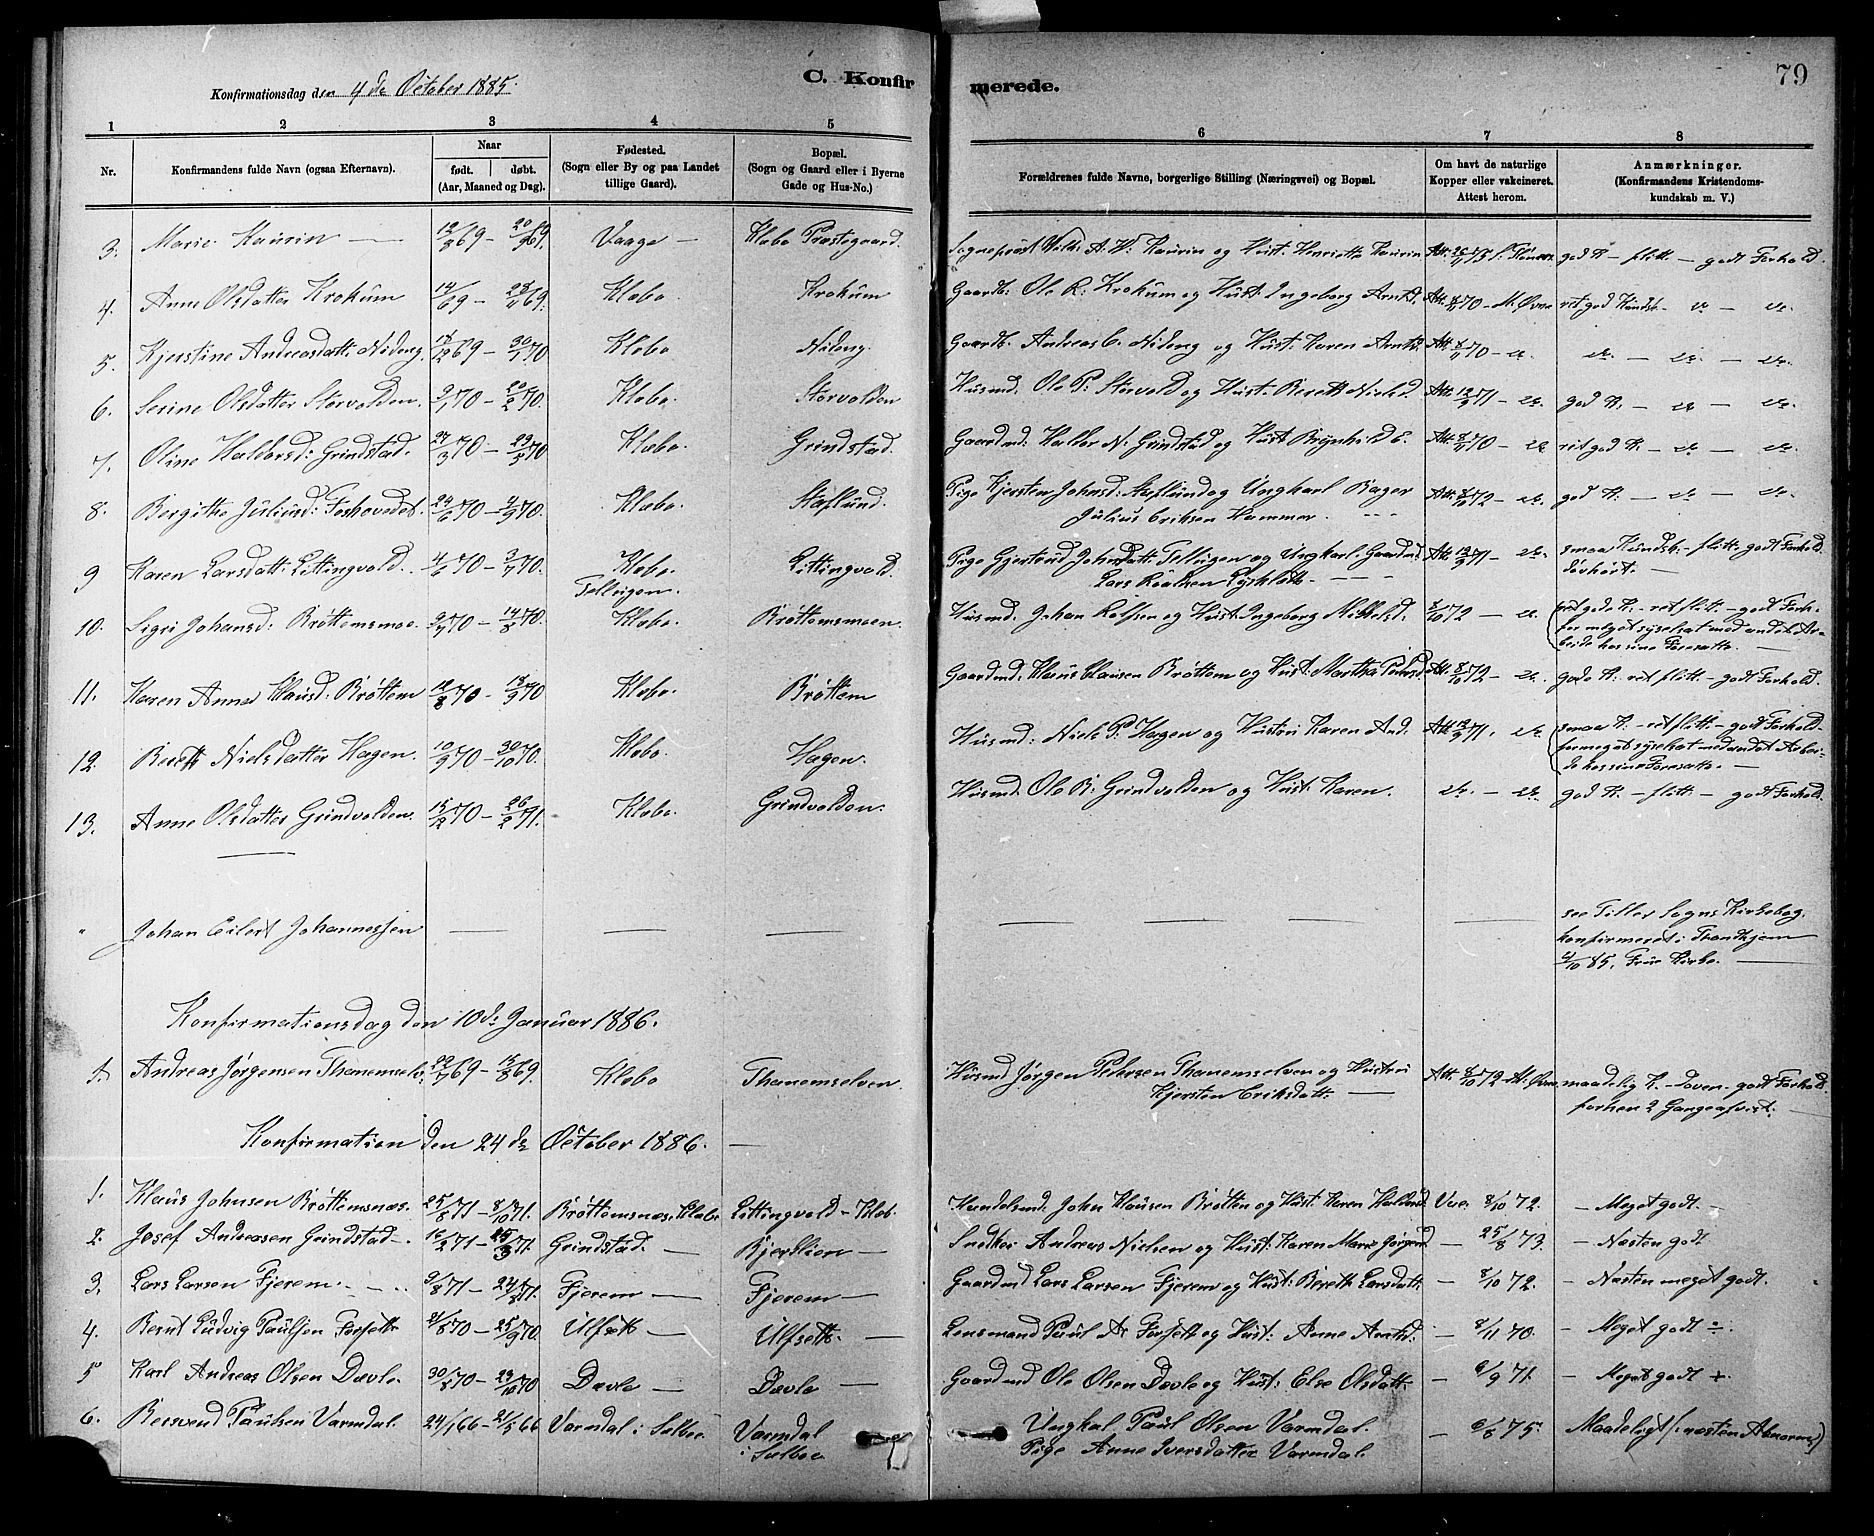 C. Konfirmerede.
79
Konfirmationsdag den 4de October 1885.
1 2 3 4 5 6 7 8
Nr.
Konfirmandens fulde Navn (ogsaa Efternavn).
Naar
født. døbt.
(Aar, Maaned og Dag).
Fødested.
(Sogn eller By og paa Landet
tillige Gaard).
Bopæl.
(Sogn og Gaard eller i Byerne
Gade og Hus-No.)
Forældrenes fulde Navne, borgerlige Stilling (Næringsvei) og Bopæl.
Om havt de naturlige
Kopper eller vakcineret.
Attest herom.
Anmærkninger.
(Konfirmandens Kristendoms-
kundskab m. V.)
3. Marie Kaurin — 69 — Vaage — Klæbo Præstegaard. Sogneprest A. W. Kaurin og Hust. Henriette Kaurin god K — flitt. — godt Forhold.
4. Anne Olsdatter Krokum 69 — 69. Klæbo. Krokum Gaardb: Ole R: Krokum og Hust. Ingeborg Arntd. Att. 8/11 70 — M. Øvre ret god Kundsk. — do — do.
5. Kjerstine Andreasdatt. Nideng. 69 — 30/1 70. Klæbo. Nideng. Gaardb. Andreas C. Nideng og Hust: Karen Arntd. Att. 8/11 70 — do. do. — do. — do.
6. Serine Olsdatter Storvolden. 2/1 70 — 20/2 70. Klæbo. Storvolden Husmd. Ole P: Storvold og Hust: Berett Nielsd. Att. 12/9 71 — do. god K. — do — do.
7. Oline Haldorsd: Grindstad. 24/3 70 — 29/5 70 Klæbo. Grindstad. Gaardmd: Haldor N: Grindstad og Hust Brynhild E. Att. 8/11 70 — do ret god K. — do — do.
8. Bergitte Juliusd: Foshovedet. 24/6 70 — 4/9 70. Klæbo. Stoflund. Pige Kjersten Johnsd: Stoflund og Ungkarl Bager
Julius Eriksen Hammer. — Att. 8/10 72 — do. god K: — do — do.
9 Karen Larsdatt. Lettingvold. 4/6 70 — 3/7 70. Klæbo.
Tellugen. Lettingvold. Pige Gjertrud Johnsdatt. Tellugen og Ungkarl. Gaardmd.
Lars Roalsen Lysklett. — Att 12/9 71 — do. smaa Kundsk. — flitt. godt Forhold.
døvhørt. —
10. Sigri Johansd: Brøttemsmoe. 2/7 70 — 14/8 70. Klæbo. Brøttemsmoen. Husmd. Johan Rolfsen og Hust. Ingeborg Mikkelsd. 8/10 72 — do. ret gode K. — ret flitt. — godt Forh.
for meget sysselsat med andet Ar-
beide hos sine Foresatte. —
11. Karen Anna Klausd: Brøttem 12/8 70 — 18/9 70 Klæbo. Brøttem Gaardmd. Klaus Klausen Brøttem og Hust. Martha Pedersd. Att. 8/10 72 — do. gode K: ret flitt. — godt Forhold.
12. Berett Nielsdatter Hagen. 10/9 70 — 30/10 70. Klæbo. Hagen. Husmd: Niels P. Hagen og Hustri Karen And. Att 12/9 71. do smaa K. — ret flitt. — godt Forhold
for meget sysselsat med andet Arbei-
de hos sine Foresatte. —
13. Anne Olsdatter Grindvolden. 15/12 70 — 26/2 71. Klæbo. Grindvolden. Husmd. Ole B: Grindvolden og Hust. Karen. do. — do. god K. — flitt. — godt Forhold.
" Johan Eilert Johannessen — — — — — — — see Tiller Sogns Kirkebog,
konfirmeret i Trondhjem
4/10 85. Frue Kirke. —
Konfirmationsdag den 10de Januar 1886.
1. Andreas Jørgensen Thanemselv. 69 — 15/8 69. Klæbo Thanemselven. Husmd Jørgen Pedersen Thanemselven og Hustri
Kjersten Eriksdatt. — Att. 8/10 72 — M. Øvre maadelig K. — doven — godt Forhold
forhen 2 Gange afvist. —
Konfirmation den 24de October 1886. —
1. Klaus Johnsen Brøttemsnæs. 25/8 71 — 8/10 71. Brøttemsnæs. Klæbo Lettingvold — Klæb. Handelsmd. John Klausen Brøtten og Hust. Karen Haldorsd. Vac. 8/10 72. — Meget godt. —
2. Josef Andreasen Grindstad — 16/2 71 — 25/3 71. Grindstad. — Bjerklien — Snedker Andreas Nielsen og Hust: Karen Marie Jørgensd — 25/8 73. — Næsten godt
3. Lars Larsen Fjerem. — 9/8 71 — 24/8 71. Fjerem — Fjerem — Gaardmd Lars Larsen Fjerem og Hust: Berett Larsdatt. — 8/10 72. — Næsten meget godt.
4. Bernt Ludvig Paulsen Forsett 2/8 70 — 25/9 70. Ulfsett — Ulfsett. — Lensmand Paul A. Forsett og Hust: Anne Arntsd. — 8/11 70. — Meget godt ÷.
5 Karl Andreas Olsen Dævle. 30/8 70 — 23/10 70 Dævle — Dævle — Gaardmd Ole Olsen Dævle og Hust: Else Olsdatt. — 6/9 71. — Meget godt +.
6. Bersvend Paulsen Varmdal. 24/1 66 — 2/5 66 Varmdal i Selboe Varmdal
i Selboe Ungkal Paul Olsen Varmdal.
Pige Anne Iversdatter Varmdal. — 6/8 75. Maadeligt (: næsten Abnorm :)